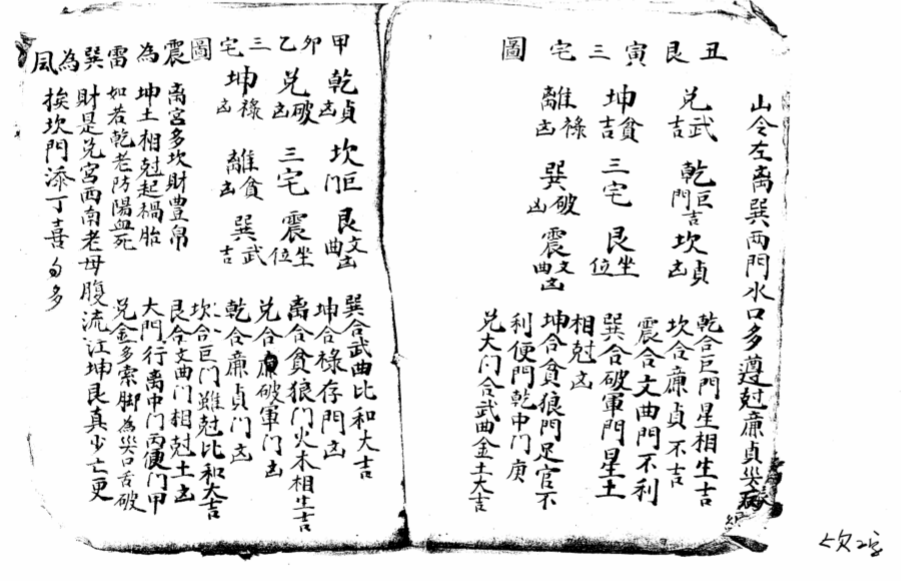 山令左离巽两門水口多遵尅廉貞災病
丑艮寅三宅圖
兑武吉
乾巨門吉
坎貞凶
坤貪吉
三宅
艮坐位
離禄凶
巽破凶
震文曲凶
乾合巨門星相生吉
坎合廉貞不吉
震合文曲門不利
巽合破軍門星土
相尅凶
坤合貪狼門足官不
利便門乾中門庚
兑大门合武曲金土大吉
甲卯乙三宅圖
震為雷巽為風
乾貞凶
坎巨门
艮文曲凶
兑破凶
三宅
震坐位
坤禄凶
離貪凶
巽武吉
巽合武曲比和大吉
坤合禄存門凶
离合貪狼门火木相生吉
兑合破軍门凶
乾合廉貞门凶
坎合巨门雖尅比和大吉
艮合文曲门相尅土凶
大門行离中门丙便门甲
离宮多坎財豊帛
坤土相尅起禍胎
如若乾老防陽血死
兑金多索脚為災口舌破
財是兑宮西南老母腹流江坤艮真少亡更
挨坎門添丁喜自多